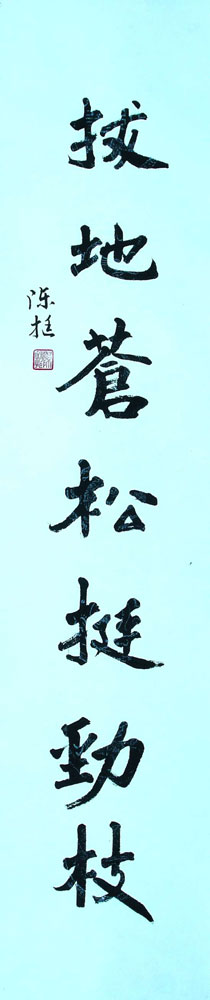 拔地蒼松挺勁枝
陈挺